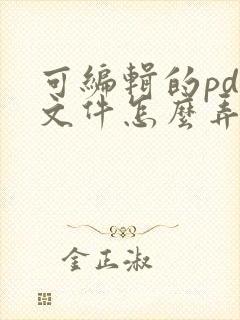 可编辑的pd
文件怎麼弄
金正淑